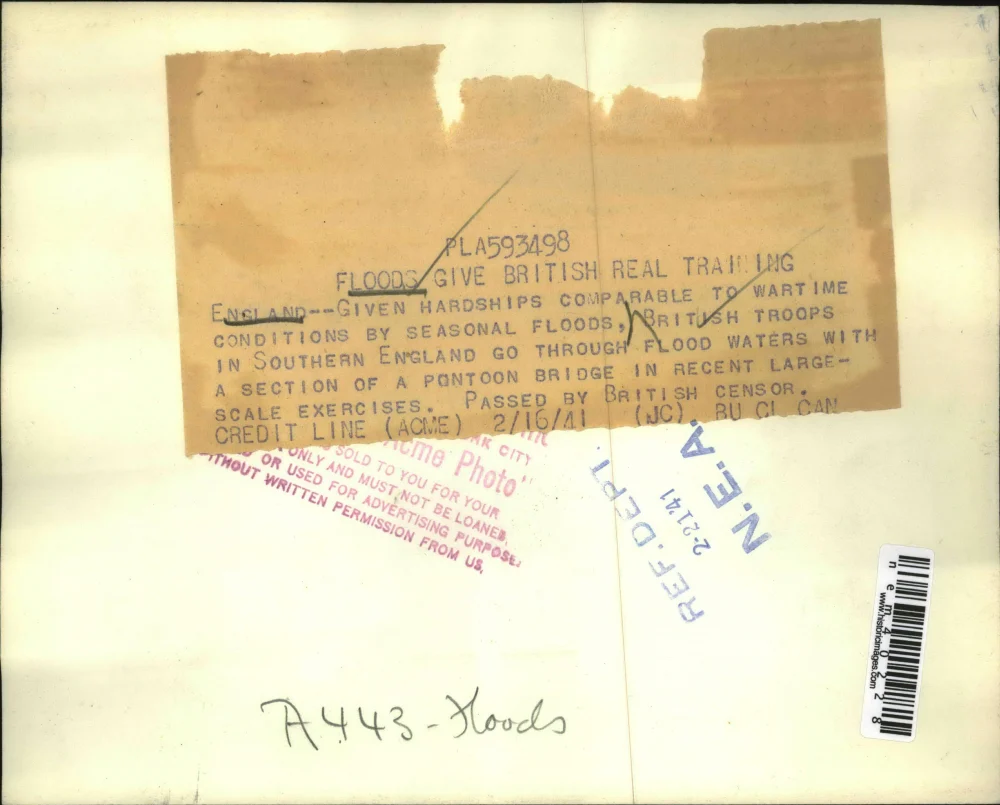 PLA593498
FLOODS GIVE BRITISH REAL TRAINING
ENGLAND--GIVEN HARDSHIPS COMPARABLE TO WARTIME
CONDITIONS BY SEASONAL FLOODS, BRITISH TROOPS
IN SOUTHERN ENGLAND GO THROUGH FLOOD WATERS WITH
A SECTION OF A PONTOON BRIDGE IN RECENT LARGE-
SCALE EXERCISES. PASSED BY BRITISH CENSOR.
CREDIT LINE (ACME) 2/16/41 (JC). BU CL CAN
CITY
Acme Photo"
SOLD TO YOU FOR YOUR
ONLY AND MUST NOT BE LOANED,
OR USED FOR ADVERTISING PURPOSE
WITHOUT WRITTEN PERMISSION FROM US.
REF. DEPT.
2-21-41
N.E.A.
nem40228
www.historicimages.com
A443-Floods